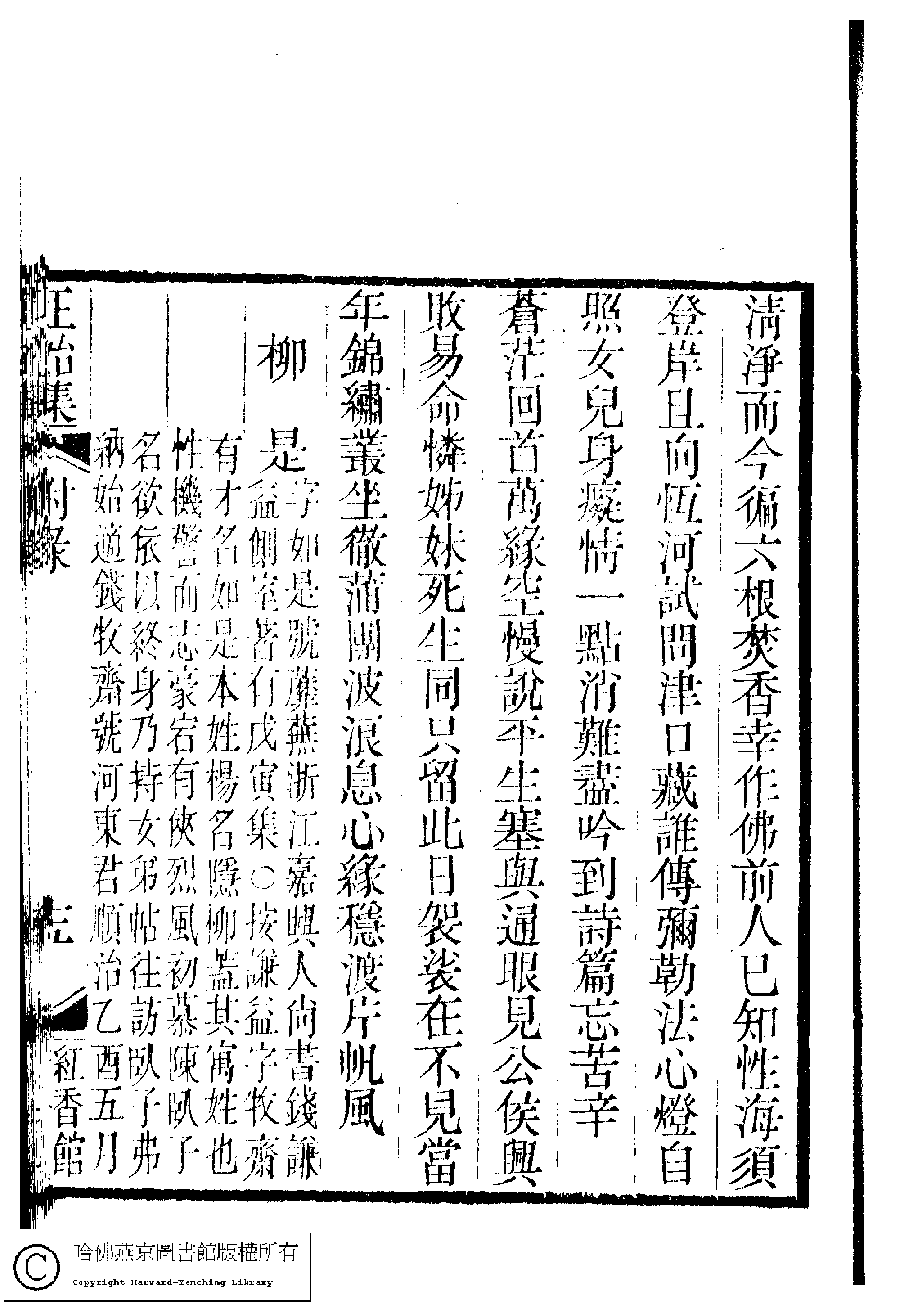 清淨而今徧六根焚香幸作佛前人已知性海須
登岸且向恆河試問津口藏誰傳彌勒法心燈自
照女兒身癡情一點消難盡吟到詩篇忘苦辛
蒼茫回首萬緣空慢說平生塞與通眼見公侯興
敗易命憐姊妹死生同只留此日袈裟在不見當
年錦繡叢坐徹蒲團波浪息心緣穩渡片帆風
柳是
字如是號蘼蕪浙江嘉興人尙書錢謙
益側室著有戊寅集○按謙益字牧齋
有才名如是本姓楊名隱柳蓋其寓姓也
性機警而志豪宕有俠烈風初慕陳臥子
名欲依以終身乃持女弟帖往訪臥子弗
納始適錢牧齋號河東君順治乙酉五月
正始集
附錄
紅香館
哈佛燕京圖書館版權所有
Copyright Harvard-Yenching Library